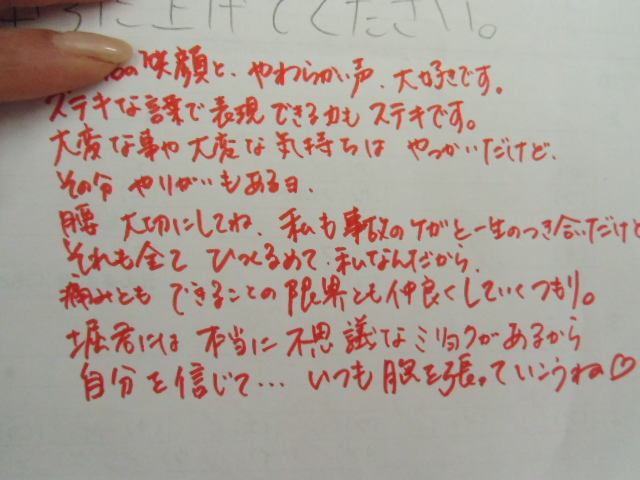 に上げてください。
の笑顔と、やわらかい声、大好きです。
ステキな言葉で表現できる力もステキです。
大変な事や大変な気持ちは やっかいだけど、
その分 やりがいもあるヨ.
腰 大切にしてね、私も事故のケガと一生のつき合いだけど
それも全て ひっくるめて、私なんだから、
痛みとも できることの限界とも仲良くしていくつもり。
堀君には 本当に不思議なミリョクがあるから
自分を信じて… いつも胸を張っていこうね♡